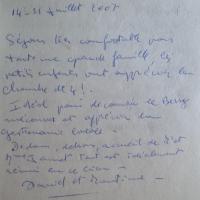 14-21 juillet 2007
Séjour très confortable pour
toute une grande famille, les
petits enfants ont apprécié la
chambre de 4 !.
Idéal pour découvrir le Berry
méconnu et apprécier sa
gastronomie
Dedans, dehors, accueil de Mr et
Mme tout est idéalement
réuni en ce lieu -
Daniel et Martine -